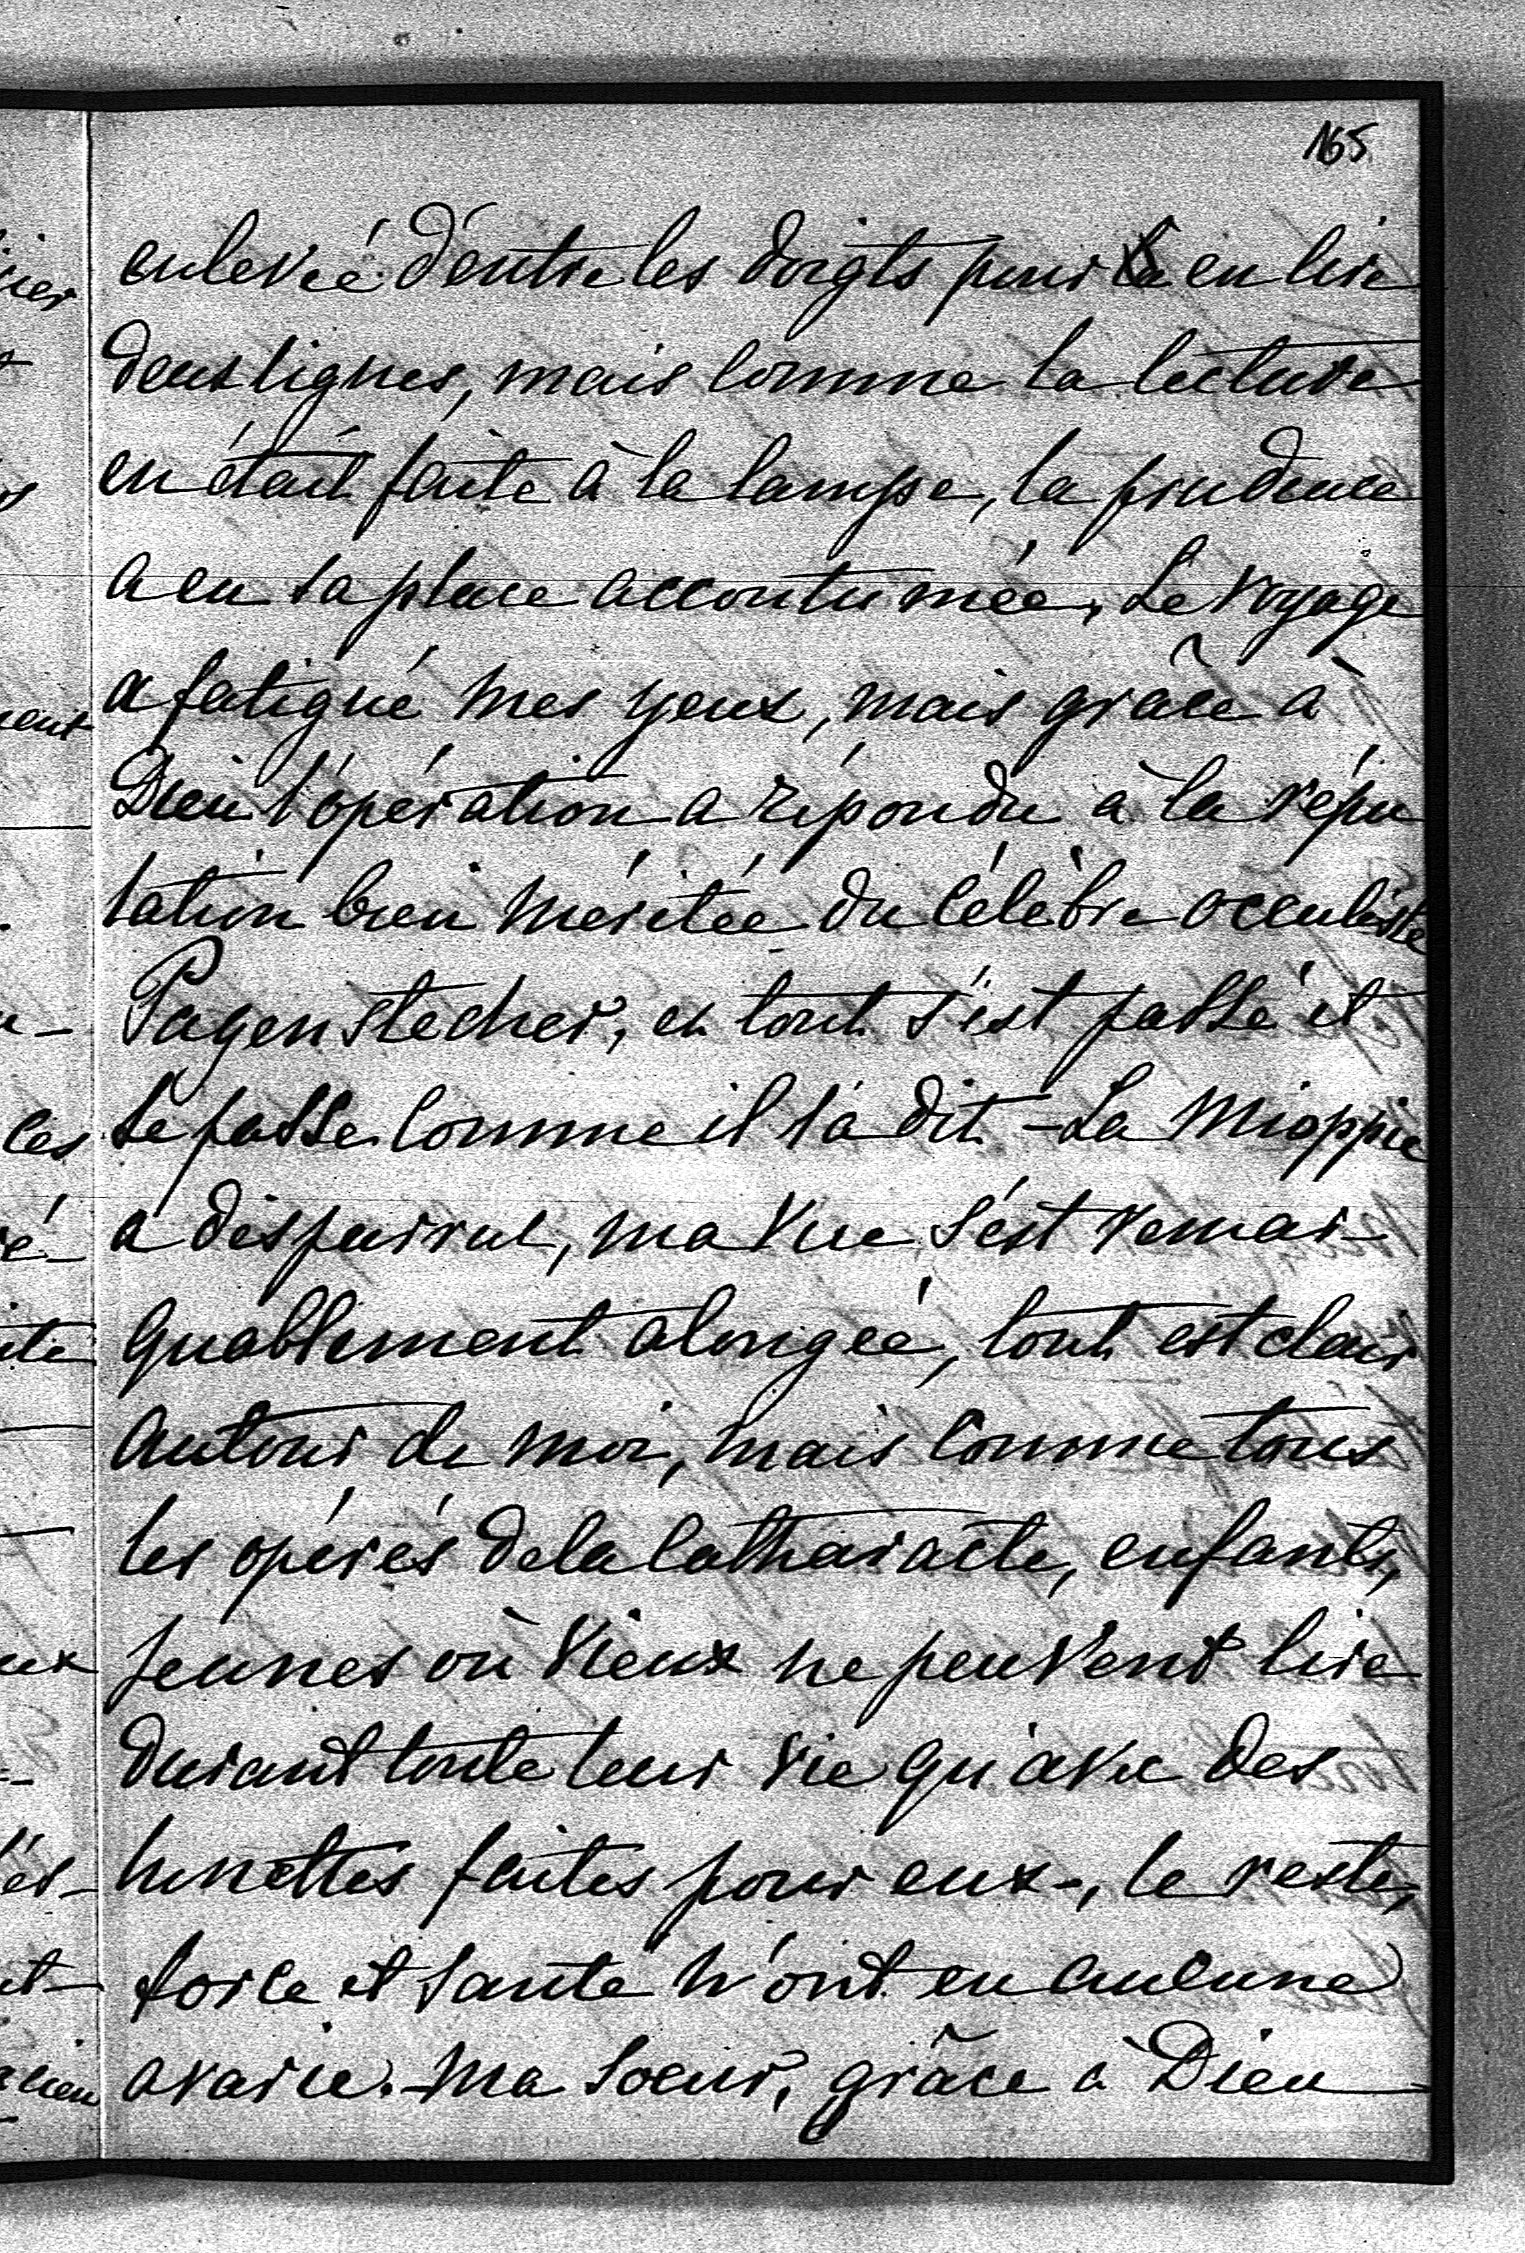 165
enlevée d'entre les doigts pour en lire
deux lignes, mais comme la lecture
en était faite à la lampe, la prudence
a eu sa place accoutumée. Le voyage
a fatigué mes yeux, mais grâce à
Dieu l'opération a répondu à la répu
tation bien méritée du célèbre occuliste
Pagenstecher, et tout s'est passé et
se passe comme il l'a dit - La mioppie
a disparrut, ma vue s'est remar-
quablement alongée, tout est clair
autour de moi, mais comme tous
les opérés de la catharacte, enfants,
jeunes où vieux ne peuvent lire
durant toute leur vie qu'avec des
lunettes faites pour eux-, le reste,
force et santé n'ont eu aucune
avarie. - Ma soeur, grâce à Dieu